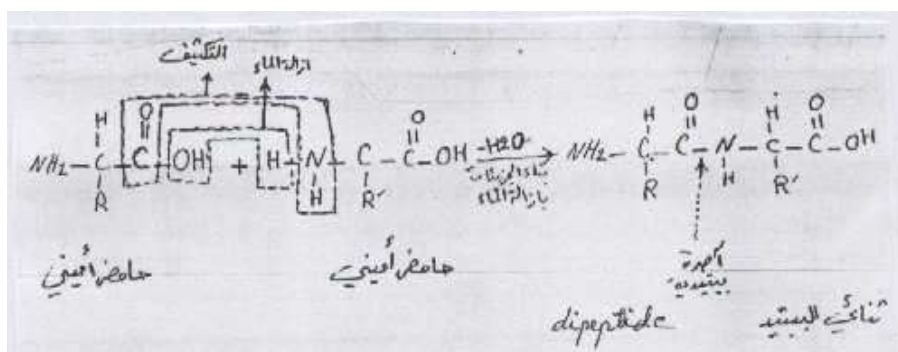 التكثيف
ازالة الماء
H O O H O
NH2 - C - C - OH + H - N - C - C - OH -H2O NH2 - C - C - N - C - C - OH
R H R' R H R'
بازالة الماء
حامض أميني حامض أميني
آصرة
ببتيدية
dipeptide ثنائي الببتيد